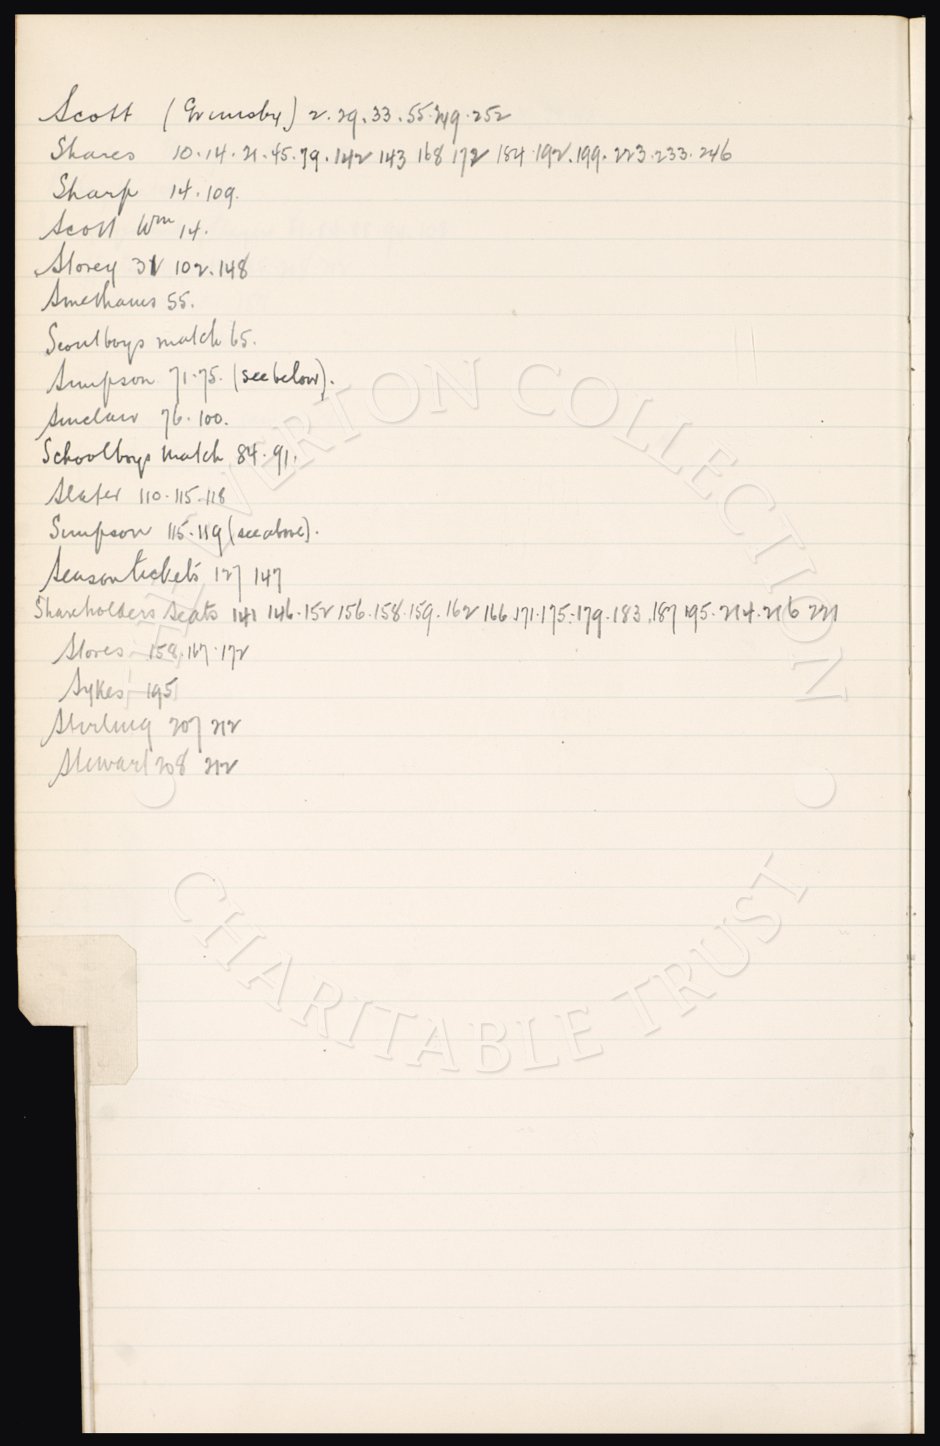 Scott (Grimsby) 2. 29. 33. 55. 249. 252
Shares 10. 14. 21. 45. 79. 142 143 168 172 184. 192. 199. 223. 233. 246
Sharp 14. 109.
Scott Wm 14.
Storey 31 102. 148
Smethams 55.
Scoutboys match 65.
Simpson 71. 75. (see below).
Sinclair 76. 100.
Schoolboys Match 84. 91.
Slater 110. 115. 118
Simpson 115. 119 (see above).
Season tickets 127 147
Shareholders Seats 141 146. 152 156. 158. 159. 162 166 171. 175. 179. 183. 187 195. 214. 216 221
Stores 158. 167. 172
Sykes 195
Stirling 207 212
Stewart 208 212
EVERTON COLLECTION
CHARITABLE TRUST